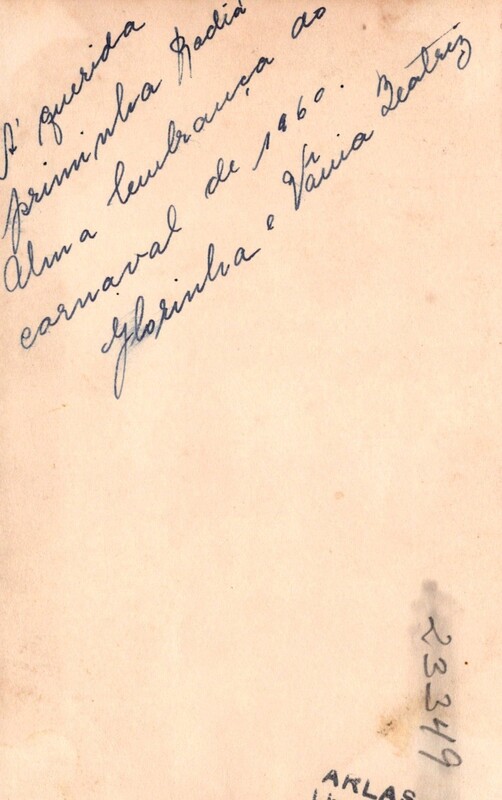 A' querida
priminha Nadiá
Uma lembrança do
carnaval de 1960.
Glorinha e Vânia Beatriz
23349
AKLAS